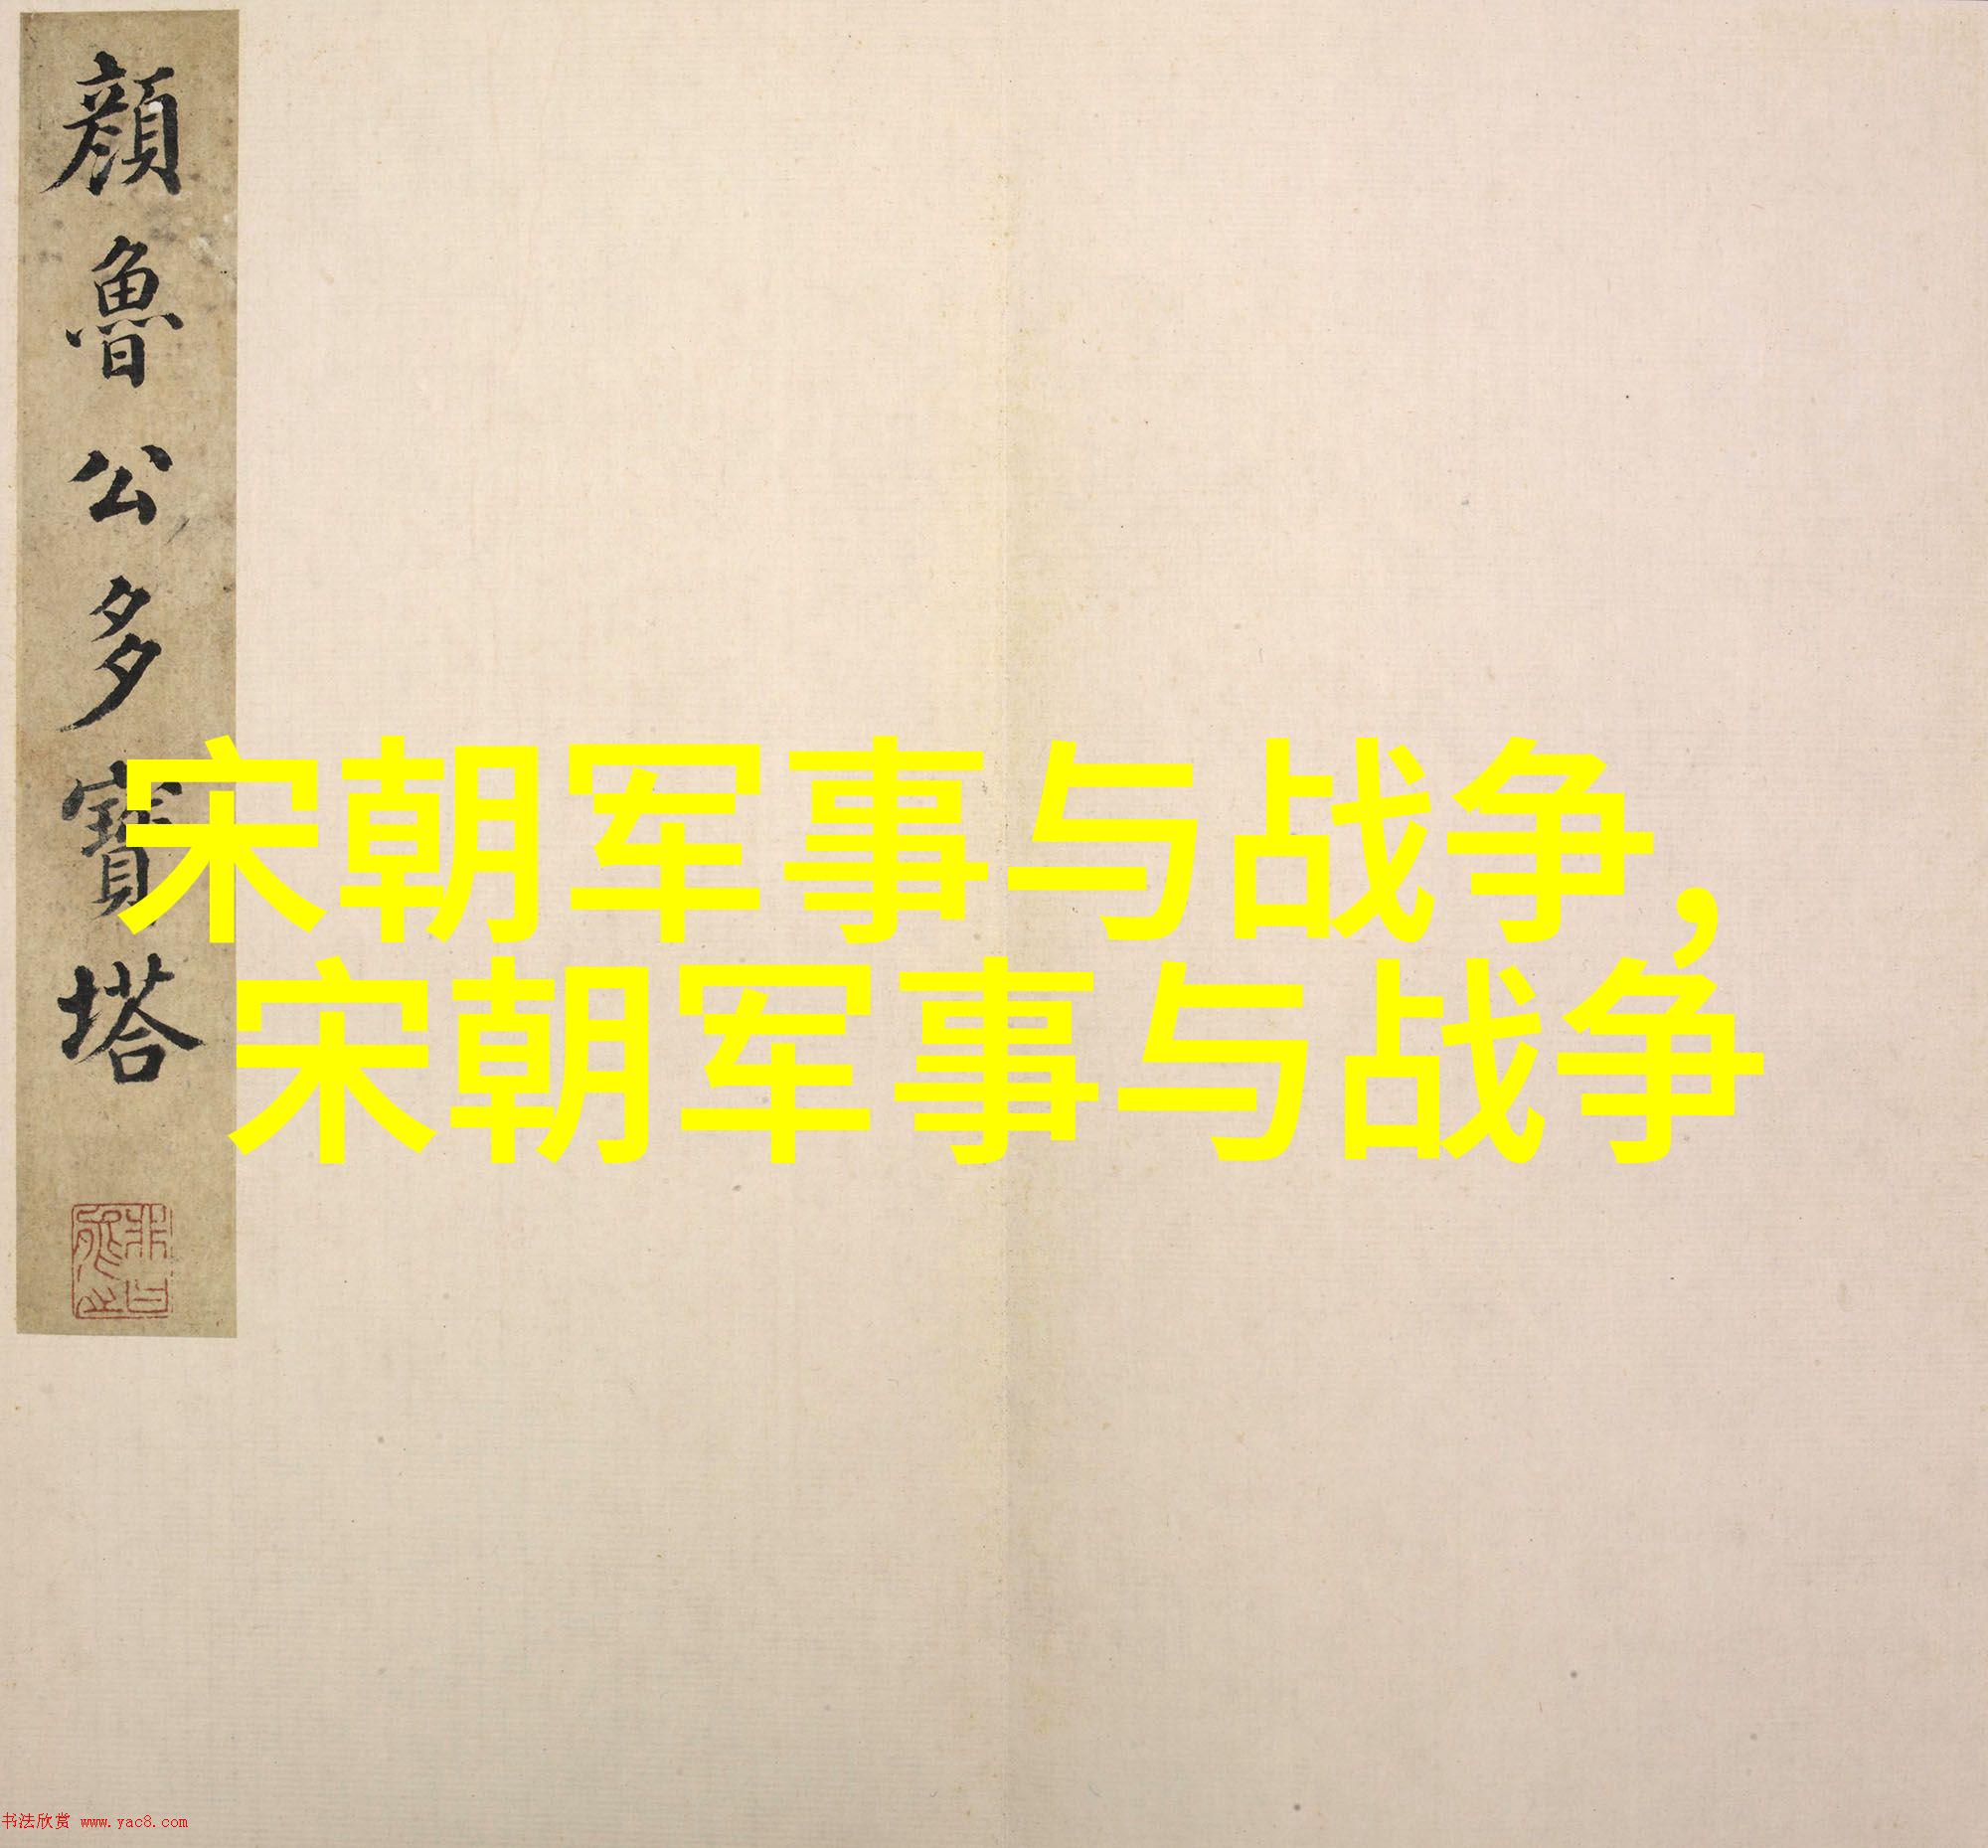 顔魯公多寶塔
宋朝军事与战争，
宋朝军事与战争
书法欣赏 www.yac8.com